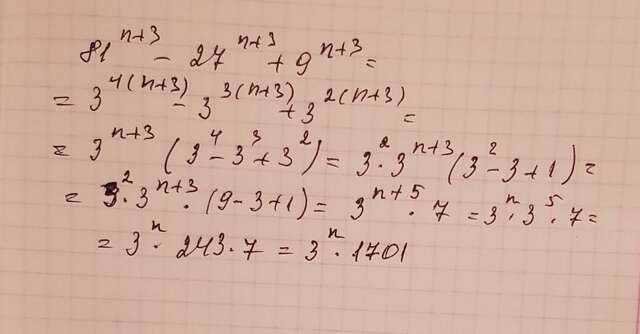 81^{n+3} - 27^{n+3} + 9^{n+3} =
= 3^{4(n+3)} - 3^{3(n+3)} + 3^{2(n+3)} =
= 3^{n+3} (3^4 - 3^3 + 3^2) = 3^2 · 3^{n+3} (3^2 - 3 + 1) =
= 3^2 · 3^{n+3} · (9 - 3 + 1) = 3^{n+5} · 7 = 3^n · 3^5 · 7 =
= 3^n · 243 · 7 = 3^n · 1701